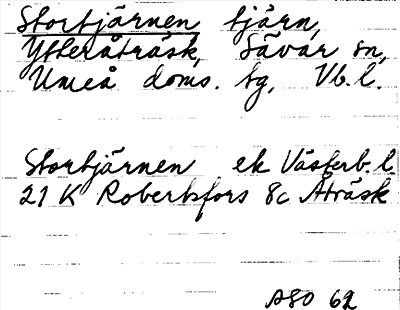 Stortjärnen tjärn,
Ytteråträsk, Sävar sn,
Umeå doms. tg, Vb. l.
Stortjärnen ek Västerb. l.
21 K Robertsfors 8c Åträsk
ASO 62